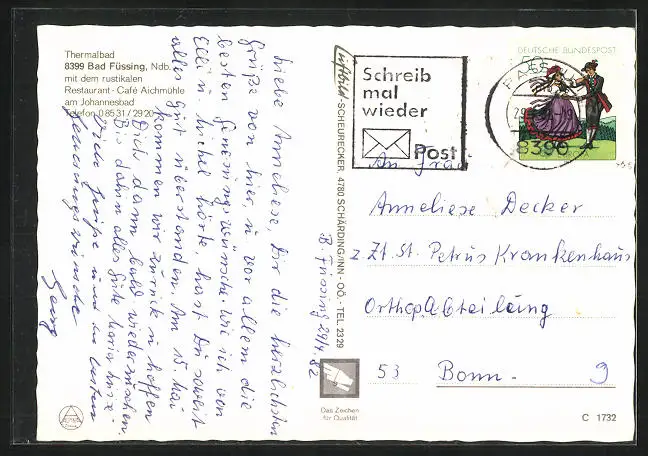 Thermalbad
8399 Bad Füssing, Ndb.
mit dem rustikalen
Restaurant - Café Aichmühle
am Johannesbad
Telefon 0 85 31 / 29 20
Liebe Anneliese, Dir die herzlichsten
Grüße von hier u vor allem die
besten Genesungswünsche. Wie ich von
Elli u. hörte, hast Du soweit
alles gut überstanden. Am 15. Mai
kommen wir zurück u hoffen
Dich dann bald wiederzusehen.
Bis dahin alles Gute
Viele Grüße und
Genesungswünsche
Luftbild-SCHEURECKER, 4780 SCHÄRDING/INN - OÖ. - TEL. 2329
B. Füssing 29/4. 82
Schreib
mal
wieder
Post
DEUTSCHE BUNDESPOST
8390
An Frau
Anneliese Decker
z. Zt. St. Petrus Krankenhaus
Orthop Abteilung
53 Bonn - 9
Das Zeichen
für Qualität
C 1732